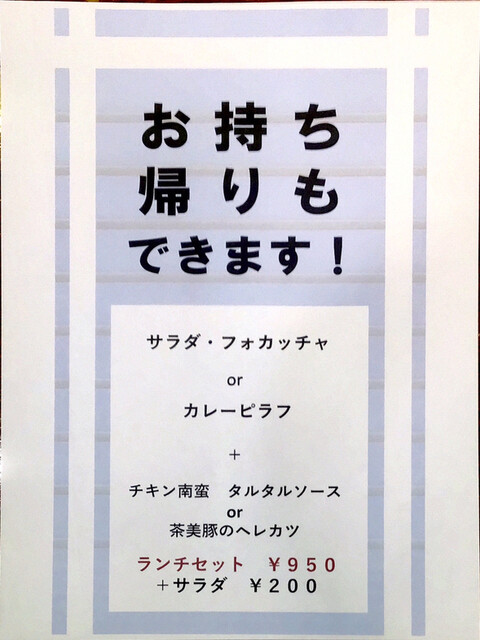 お持ち
帰りも
できます！
サラダ・フォカッチャ
or
カレーピラフ
+
チキン南蛮　タルタルソース
or
茶美豚のヘレカツ
ランチセット　￥９５０
＋サラダ　￥２００